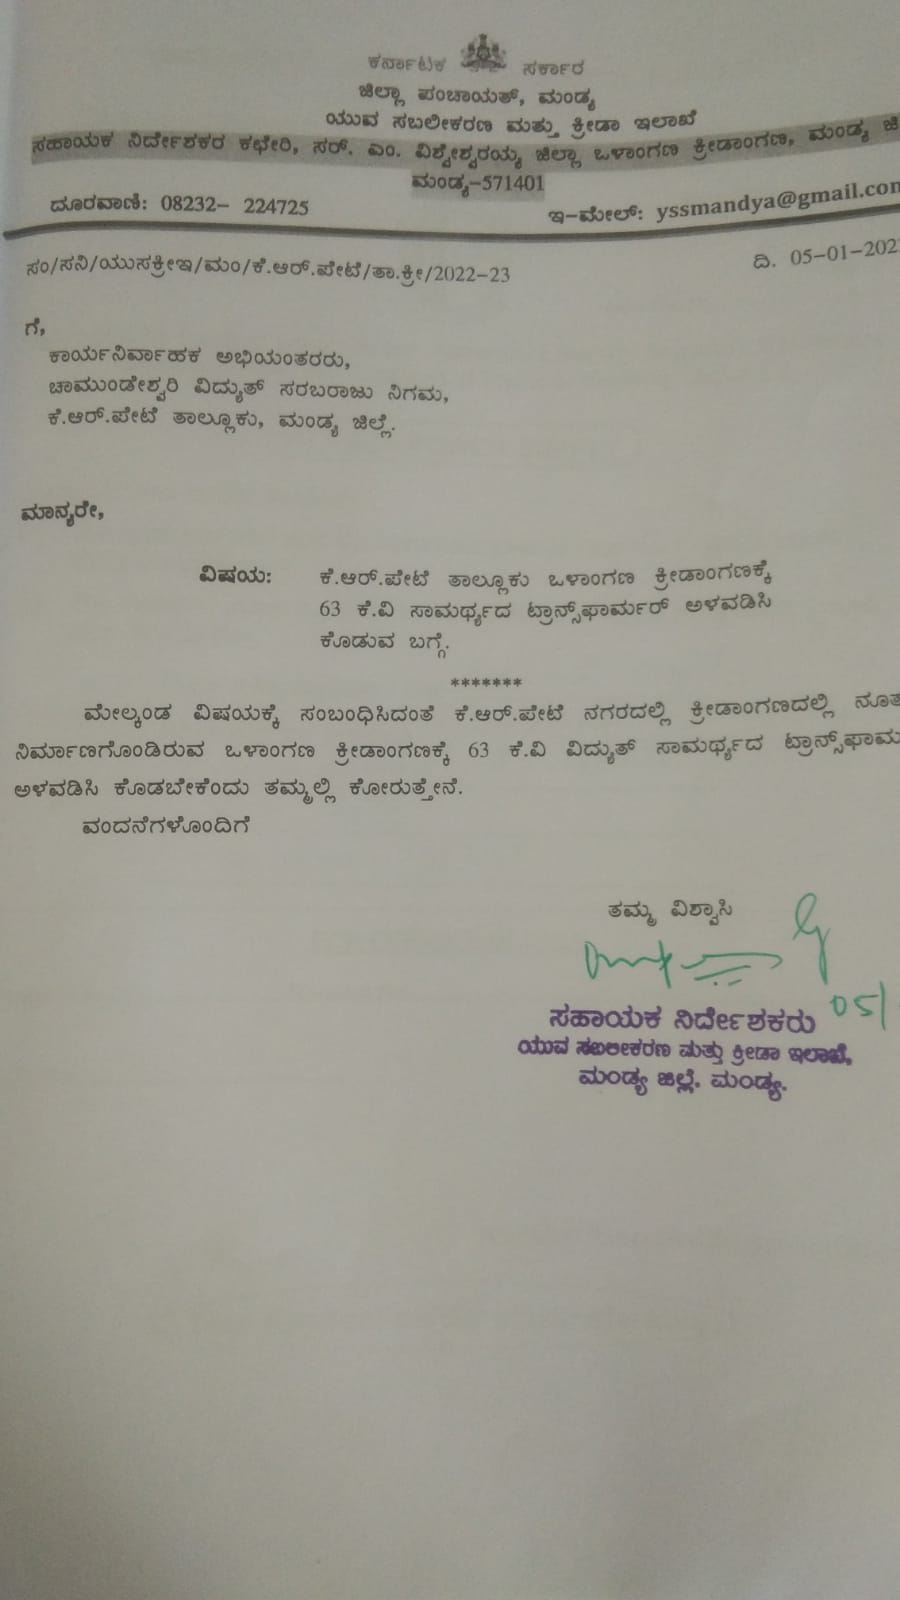 ಕರ್ನಾಟಕ ಸರ್ಕಾರ
ಜಿಲ್ಲಾ ಪಂಚಾಯತ್, ಮಂಡ್ಯ
ಯುವ ಸಬಲೀಕರಣ ಮತ್ತು ಕ್ರೀಡಾ ಇಲಾಖೆ
ಸಹಾಯಕ ನಿರ್ದೇಶಕರ ಕಛೇರಿ, ಸರ್. ಎಂ. ವಿಶ್ವೇಶ್ವರಯ್ಯ ಜಿಲ್ಲಾ ಒಳಾಂಗಣ ಕ್ರೀಡಾಂಗಣ, ಮಂಡ್ಯ ಜಿ
ಮಂಡ್ಯ-571401
ದೂರವಾಣಿ: 08232- 224725 ಇ-ಮೇಲ್: yssmandya@gmail.com
ಸಂ/ಸನಿ/ಯುಸಕ್ರೀಇ/ಮಂ/ಕೆ.ಆರ್.ಪೇಟೆ/ತಾ.ಕ್ರೀ/2022-23 ದಿ. 05-01-202
ಗೆ,
ಕಾರ್ಯನಿರ್ವಾಹಕ ಅಭಿಯಂತರರು,
ಚಾಮುಂಡೇಶ್ವರಿ ವಿದ್ಯುತ್ ಸರಬರಾಜು ನಿಗಮ,
ಕೆ.ಆರ್.ಪೇಟೆ ತಾಲ್ಲೂಕು, ಮಂಡ್ಯ ಜಿಲ್ಲೆ.
ಮಾನ್ಯರೇ,
ವಿಷಯ: ಕೆ.ಆರ್.ಪೇಟೆ ತಾಲ್ಲೂಕು ಒಳಾಂಗಣ ಕ್ರೀಡಾಂಗಣಕ್ಕೆ
63 ಕೆ.ವಿ ಸಾಮರ್ಥ್ಯದ ಟ್ರಾನ್ಸ್‌ಫಾರ್ಮರ್ ಅಳವಡಿಸಿ
ಕೊಡುವ ಬಗ್ಗೆ.
*******
ಮೇಲ್ಕಂಡ ವಿಷಯಕ್ಕೆ ಸಂಬಂಧಿಸಿದಂತೆ ಕೆ.ಆರ್.ಪೇಟೆ ನಗರದಲ್ಲಿ ಕ್ರೀಡಾಂಗಣದಲ್ಲಿ ನೂತ
ನಿರ್ಮಾಣಗೊಂಡಿರುವ ಒಳಾಂಗಣ ಕ್ರೀಡಾಂಗಣಕ್ಕೆ 63 ಕೆ.ವಿ ವಿದ್ಯುತ್ ಸಾಮರ್ಥ್ಯದ ಟ್ರಾನ್ಸ್‌ಫಾರ್ಮ
ಅಳವಡಿಸಿ ಕೊಡಬೇಕೆಂದು ತಮ್ಮಲ್ಲಿ ಕೋರುತ್ತೇನೆ.
ವಂದನೆಗಳೊಂದಿಗೆ
ತಮ್ಮ ವಿಶ್ವಾಸಿ
05/
ಸಹಾಯಕ ನಿರ್ದೇಶಕರು
ಯುವ ಸಬಲೀಕರಣ ಮತ್ತು ಕ್ರೀಡಾ ಇಲಾಖೆ,
ಮಂಡ್ಯ ಜಿಲ್ಲೆ. ಮಂಡ್ಯ.